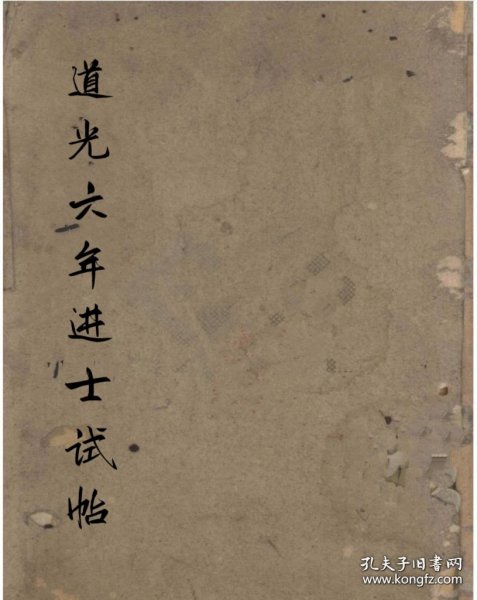 道光六年进士试帖
孔夫子旧书网
www.kongfz.com